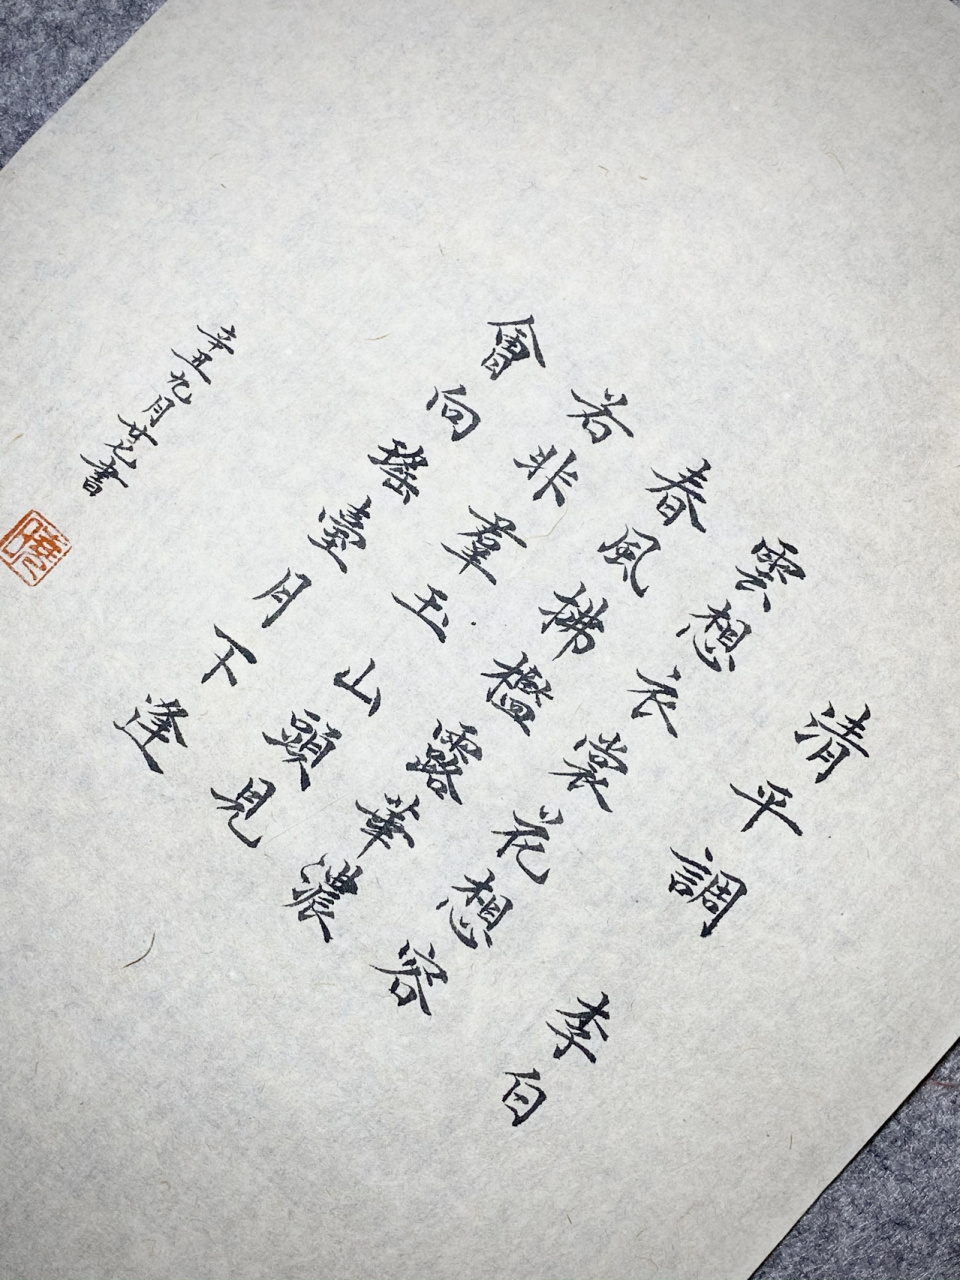 清平調 李白
雲想衣裳花想容
春風拂檻露華濃
若非羣玉山頭見
會向瑤臺月下逢
辛丑九月廿七書
曉